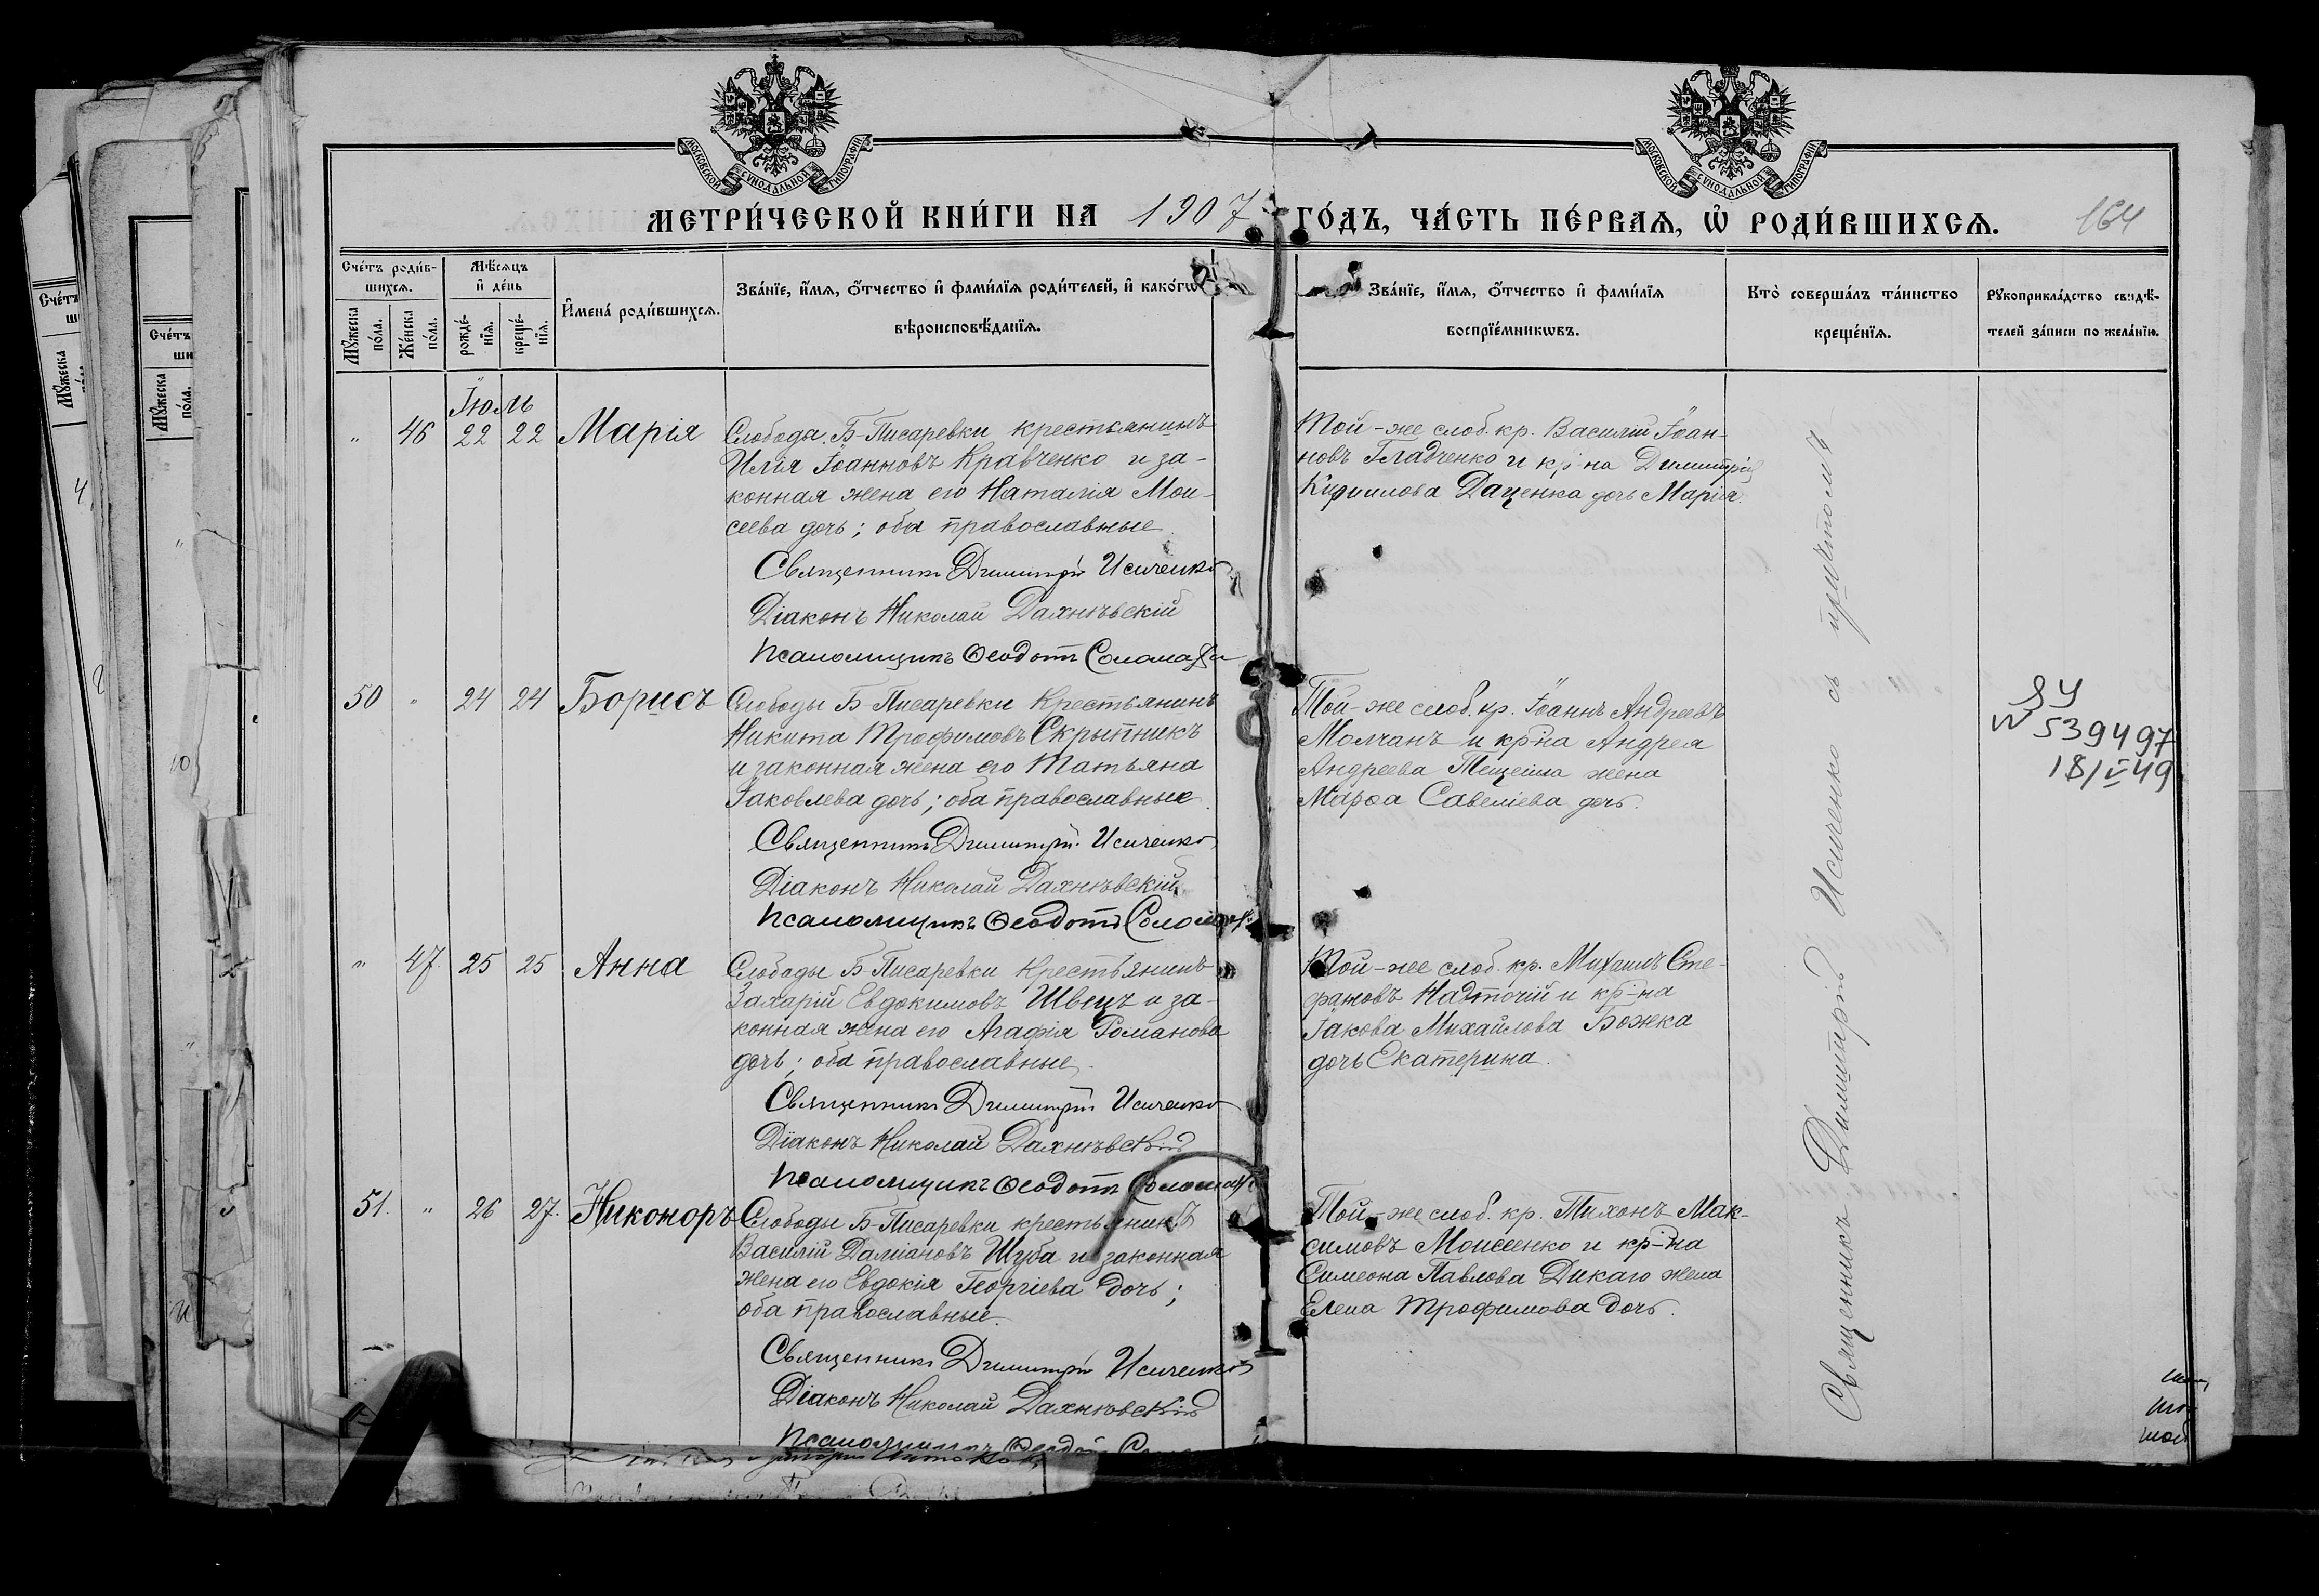 МОСКОВСКОЙ СѴНОДАЛЬНОЙ ТИПОГРАФІИ
МОСКОВСКОЙ СѴНОДАЛЬНОЙ ТИПОГРАФІИ
МЕТРИ́ЧЕСКОЙ КНИ́ГИ НА 1907 ГО́ДЪ, ЧА́СТЬ ПЕ́РВАЯ, Ѡ҆ РОДИ́ВШИХСѦ.
164
Сче́тъ роди́в-
шихсѧ.
Мꙋ́жеска по́ла.
Же́нска по́ла.
Мѣ́сѧцъ
и҆ де́нь
рожде́-
нїѧ.
креще́-
нїѧ.
И҆мена́ роди́вшихсѧ.
Зва́нїе, и҆́мѧ, ѻ҆́тчество и҆ фами́лїѧ роди́телей, и҆ како́гѡ
вѣроисповѣ́данїѧ.
Зва́нїе, и҆́мѧ, ѻ҆́тчество и҆ фами́лїѧ
воспрїе́мникѡвъ.
Кто̀ соверша́лъ та́инство
креще́нїѧ.
Рꙋкоприкла́дство свидѣ́-
телей за́писи по жела́нїю.
Іюль
" 46 22 22 Марія
Слободы Б-Писаревки крестьянинъ
Илія Іоанновъ Кравченко и за-
конная жена его Наталія Мои-
сеева дочь; оба православные
Священникъ Димитрій Исиченко
Діаконъ Николай Дахнѣвскій
Псаломщикъ Ѳеодотъ Соломаха
Той-же слоб. кр. Василій Іоан-
новъ Гладченко и кр-на Димитрія
Кириллова Даценка дочь Марія.
50 " 24 24 Борисъ
Слободы Б-Писаревки Крестьянинъ
Никита Трофимовъ Скрыпникъ
и законная жена его Татьяна
Іаковлева дочь; оба православные.
Священникъ Димитрій Исиченко
Діаконъ Николай Дахнѣвскій
Псаломщикъ Ѳеодотъ Соломаха
Той-же слоб. кр. Іоаннъ Андреевъ
Молчанъ и кр-на Андрея
Андреева жена
Марѳа Савеліева дочь.
ЯЧ
№ 539497
18/V 49
" 47. 25 25 Анна
Слободы Б-Писаревки Крестьянинъ
Захарій Евдокимовъ Швецъ и за-
конная жена его Агафія Романова
дочь; оба православные.
Священникъ Димитрій Исиченко
Діаконъ Николай Дахнѣвскій
Псаломщикъ Ѳеодотъ Соломаха
Той-же слоб. кр. Михаилъ Сте-
фановъ Надточій и кр-на
Іакова Михайлова Божка
дочь Екатерина.
51. " 26 27. Никоноръ
Слободы Б-Писаревки крестьянинъ
Василій Даміановъ Шуба и законная
жена его Евдокія Георгіева дочь;
оба православные.
Священникъ Димитрій Исиченко
Діаконъ Николай Дахнѣвскій
Псаломщикъ Ѳеодотъ
Той-же слоб. кр. Тихонъ Мак-
симовъ Моисеенко и кр-на
Симеона Павлова Дикаго жена
Елена Трофимова дочь.
Священникъ Димитрій Исиченко съ причтомъ